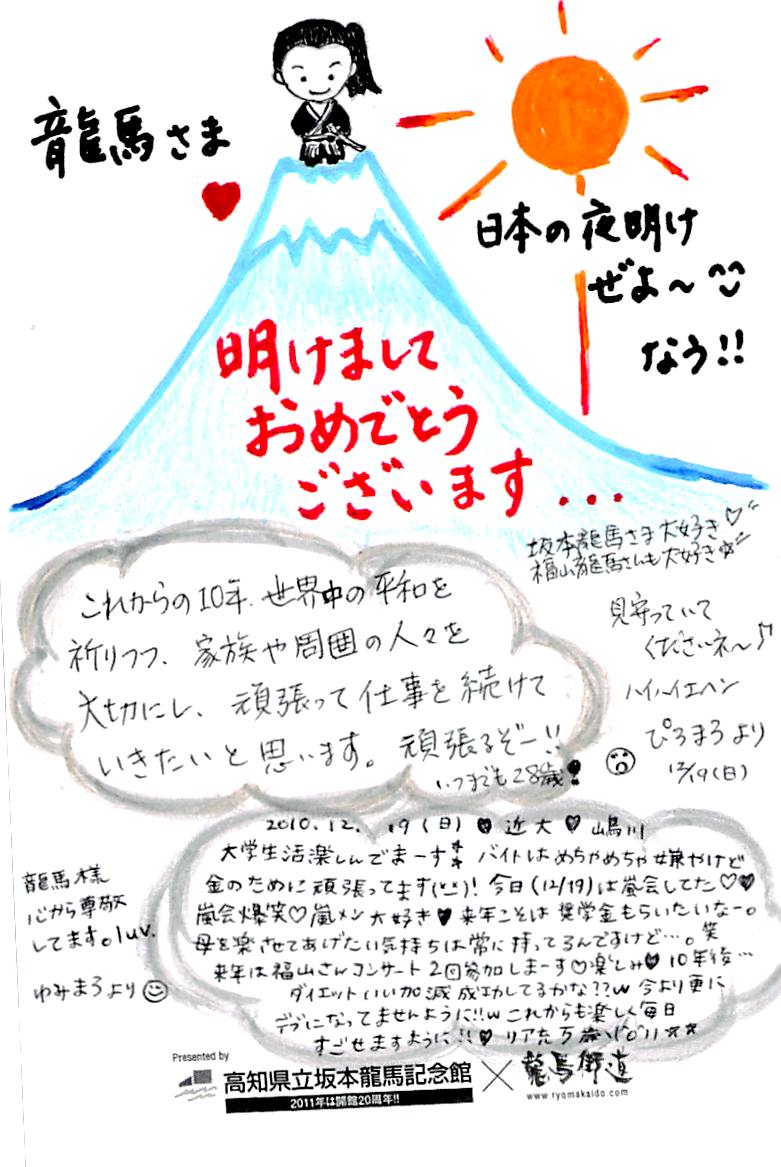 龍馬さま
日本の夜明け
ぜよ〜^^
なう!!
明けまして
おめでとう
ございます...
坂本龍馬さま大好き♡
福山龍馬さんも大好き☆
これからの10年、世界中の平和を
祈りつつ、家族や周囲の人々を
大切にし、頑張って仕事を続けて
いきたいと思います。頑張るぞー!!
いつまでも28歳!
見守っていて
くださいネ〜♪
ハイハイエヘン
ぴろまろより
12/19(日)
2010.12.19(日)♥近大♥嶋川
大学生活楽しんでまーす バイトはめちゃめちゃ嫌やけど
金のために頑張ってます(××)! 今日(12/19)は嵐会してた♡♥
嵐会爆笑♡嵐メン大好き♥来年こそは奨学金もらいたいなー。
母を楽させてあげたい気持ちは常に持ってるんですけど…。笑
来年は福山さんコンサート2回参加しまーす♡楽しみ♥10年後…
ダイエットいい加減成功してるかな??w 今より更に
デブになってませんように!!w これからも楽しく毎日
すごせますように!!♥ リア充万歳\(^o^)/☆☆
龍馬様
心から尊敬
してます。luv.
ゆみまろより
Presented by
高知県立坂本龍馬記念館
2011年は開館20周年!!
×
龍馬街道
www.ryomakaido.com